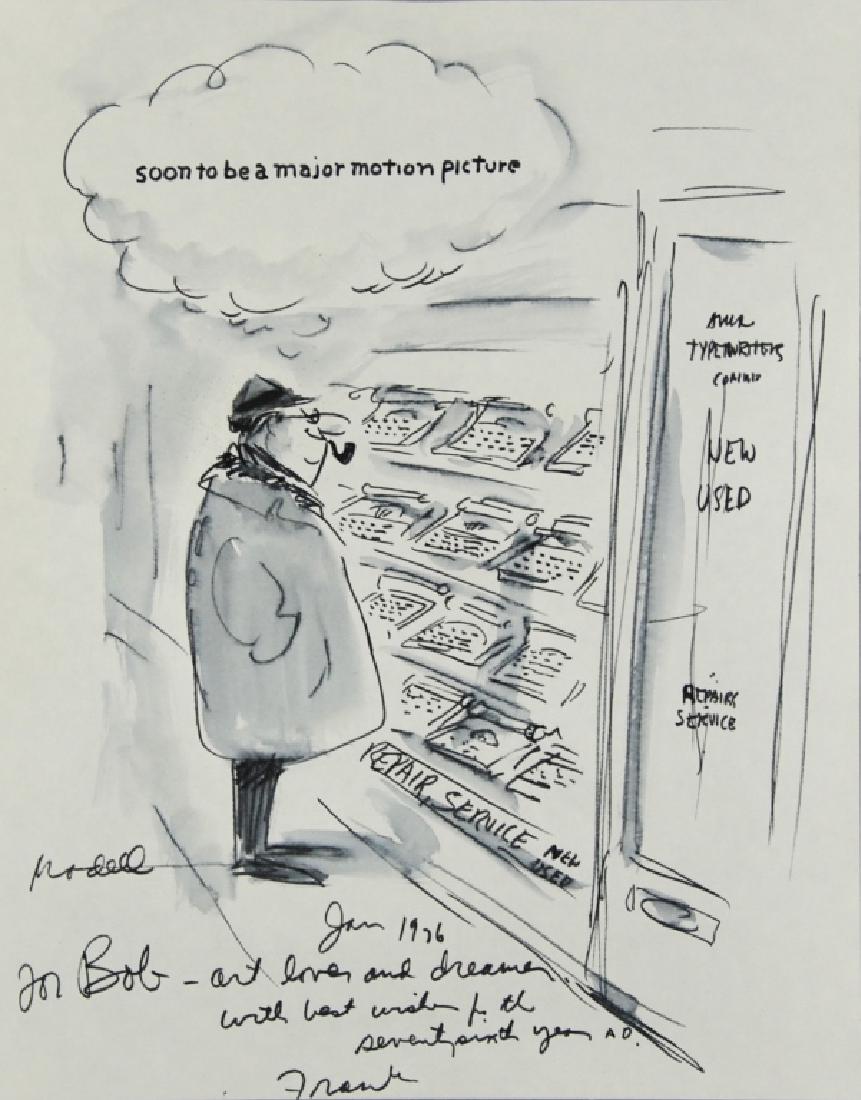 soon to be a major motion picture
TYPEWRITERS
NEW
USED
REPAIRS
SERVICE
REPAIR, SERVICE NEW
USED
Modell
Jan 1976
for Bob - art lover and dreamer
with best wishes for the
seventysixth year A.D.
Frank